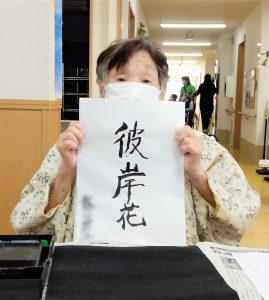 彼岸花